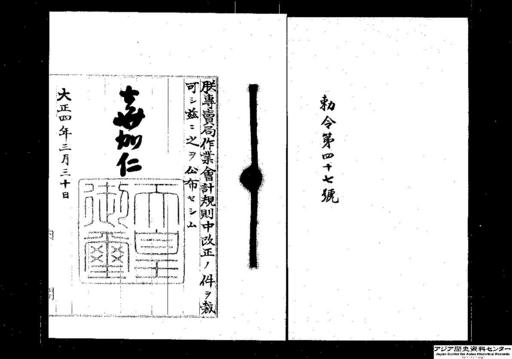 勅令第四十七號
朕專賣局作業會計規則中改正ノ件ヲ裁
可シ茲ニ之ヲ公布セシム
嘉仁
天皇
御璽
大正四年三月三十日
アジア歴史資料センター
Japan Center for Asian Historical Records